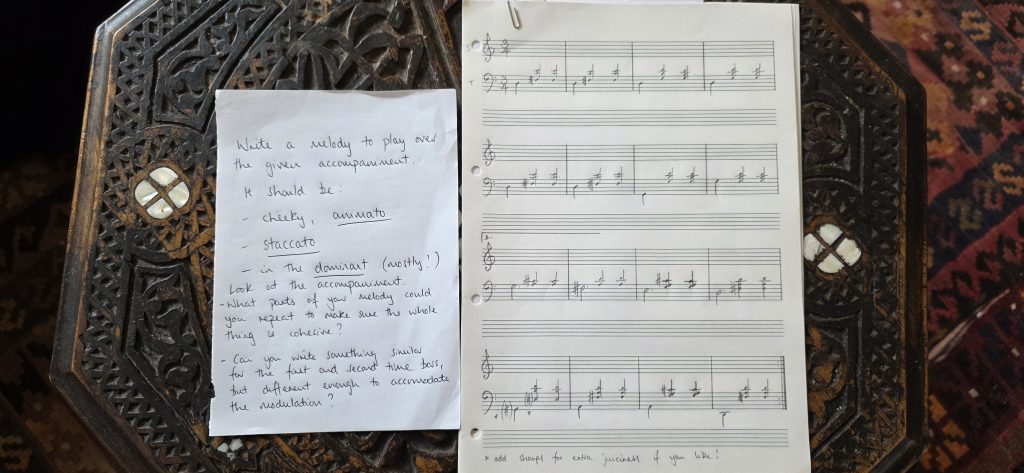 Write a melody to play over
the given accompaniment.
It should be:
- cheeky, animato
- staccato
- in the dominant (mostly!)
Look at the accompaniment.
- What parts of your melody could
you repeat to make sure the whole
thing is cohesive?
- Can you write something similar
for the first and second time bars,
but different enough to accomodate
the modulation?
3
4
3
4
1.
* add sharps for extra juiciness if you like!